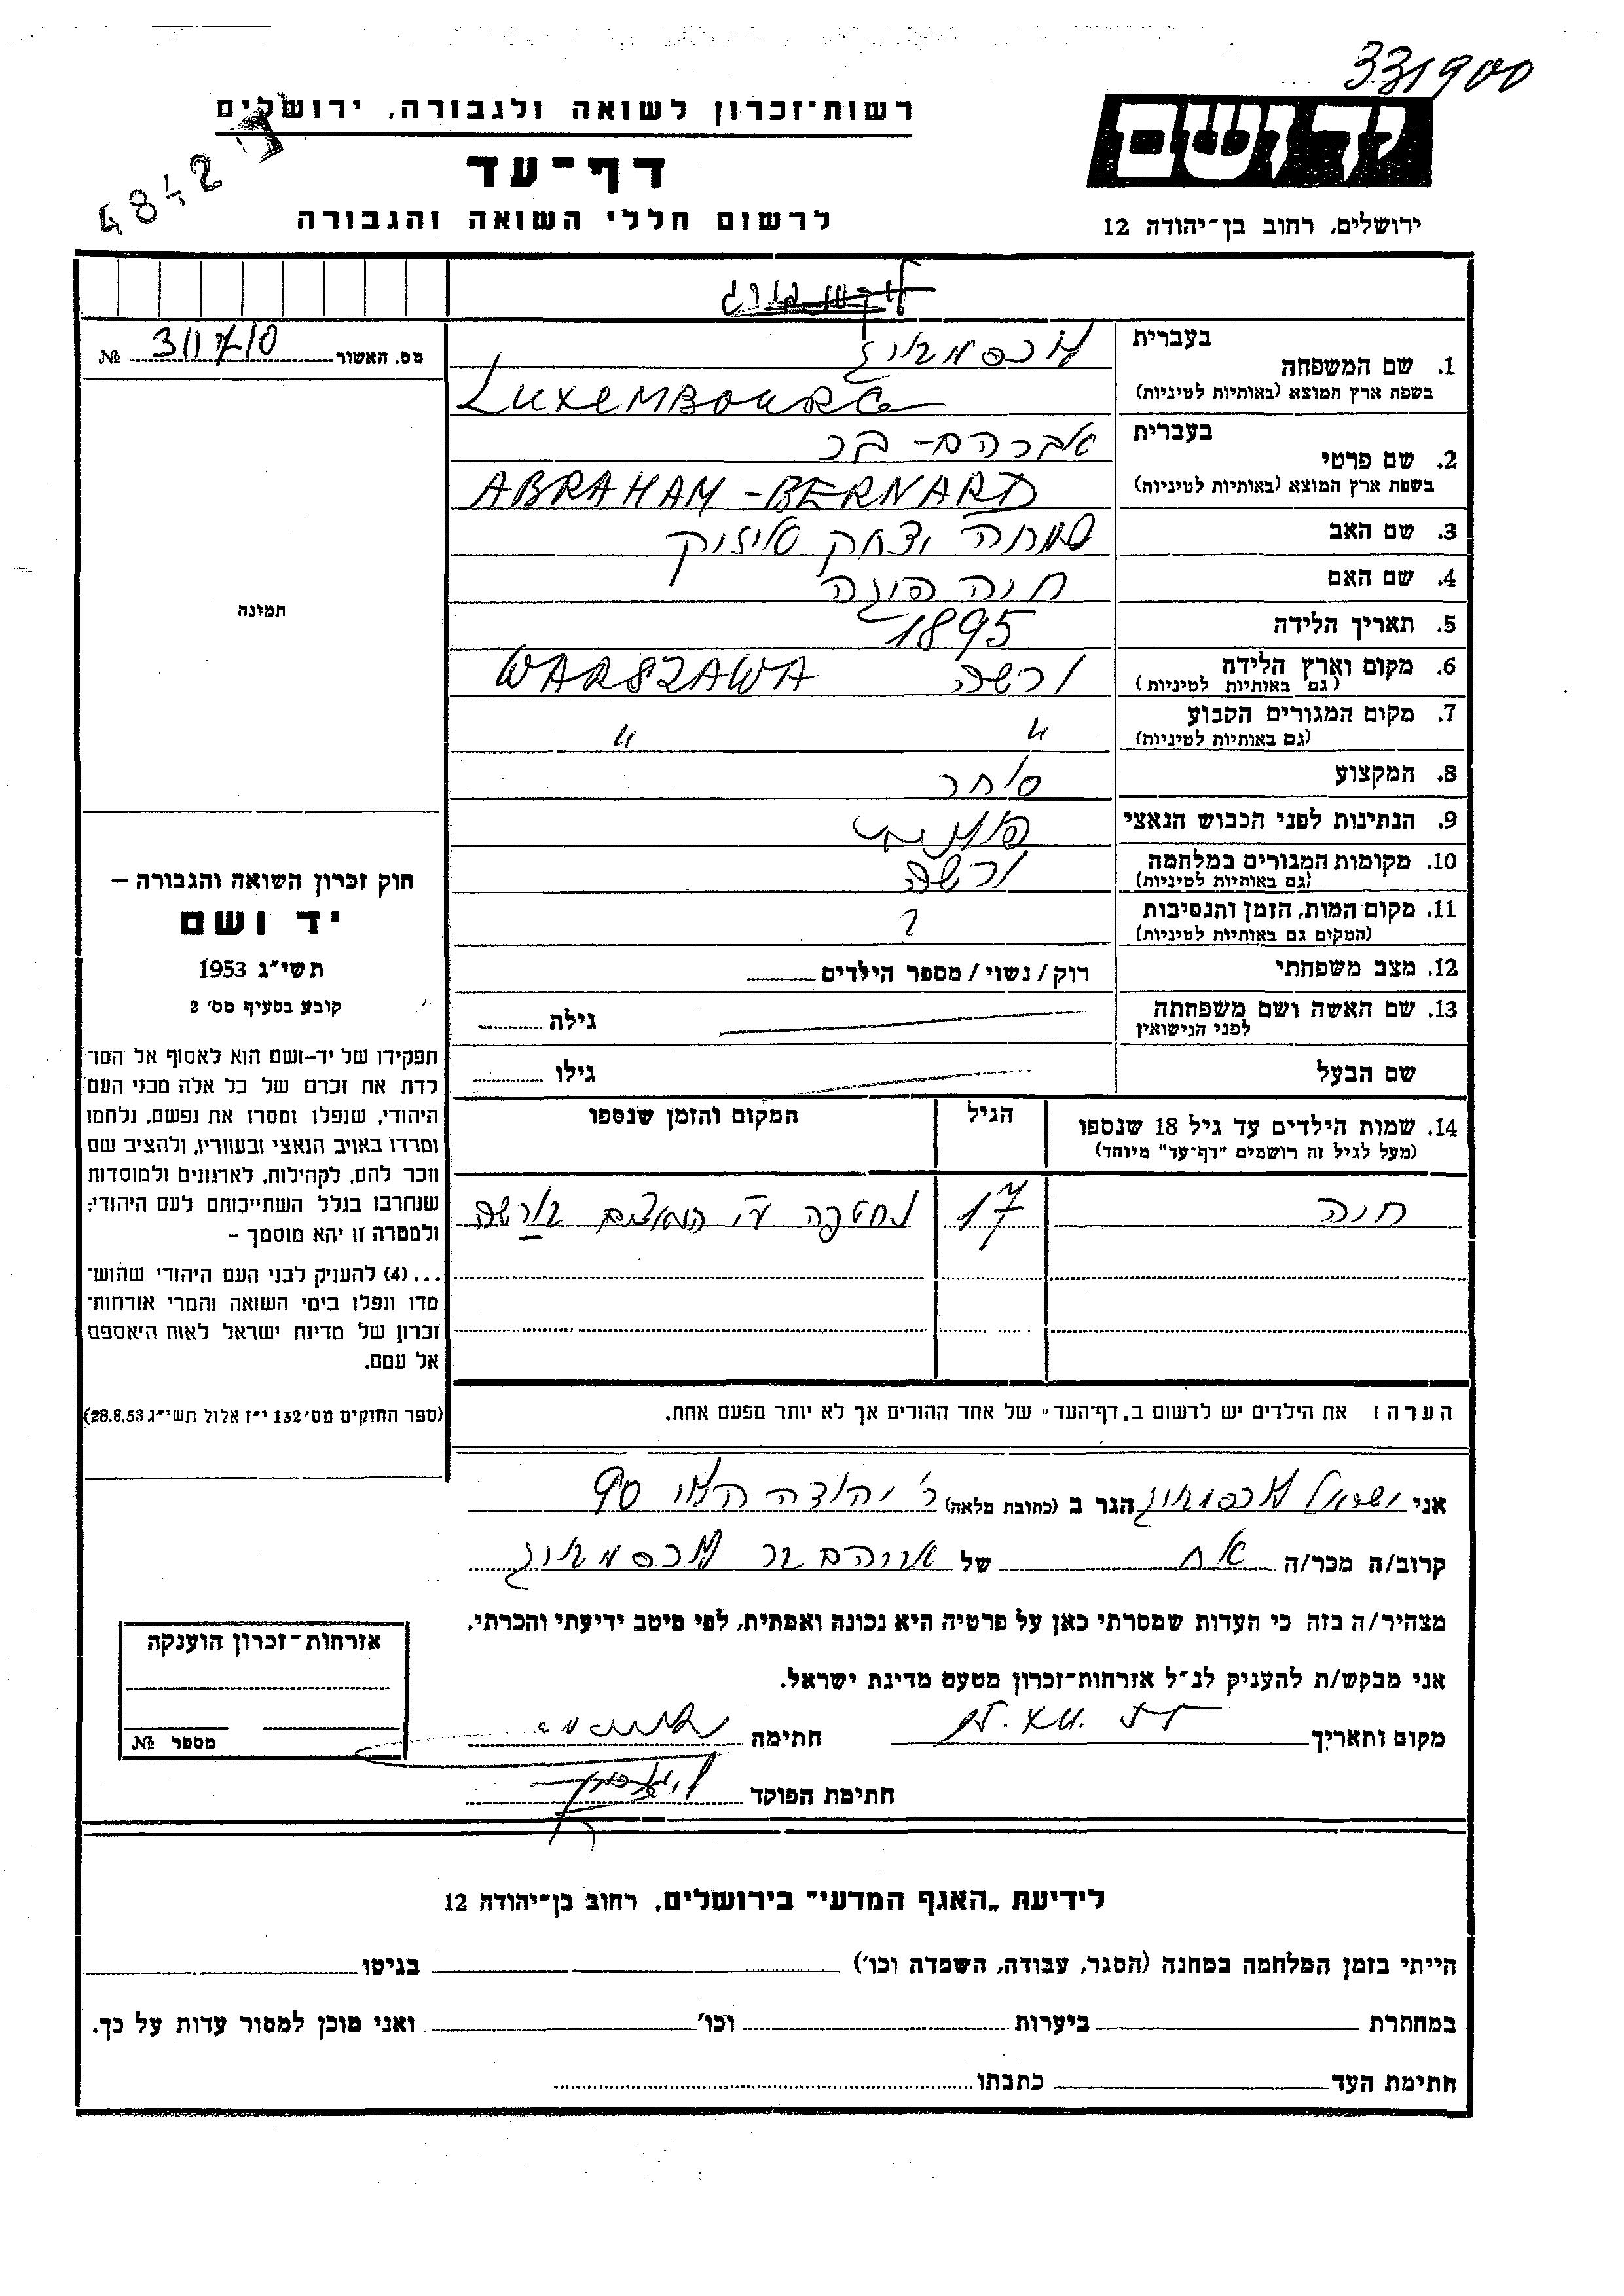 331900
רשות־זכרון לשואה ולגבורה, ירושלים
ידושם
4842
דף־עד
לרשום חללי השואה והגבורה
ירושלים, רחוב בן־יהודה 12
מס. האשור 311710 №
1. שם המשפחה
בעברית
לוכסמבורג
בשפת ארץ המוצא (באותיות לטיניות)
LUXEMBOURG
2. שם פרטי
בעברית
אברהם- בר
בשפת ארץ המוצא (באותיות לטיניות)
ABRAHAM-BERNARD
3. שם האב שמחה יצחק אייזיק
4. שם האם חיה
5. תאריך הלידה 1895
6. מקום וארץ הלידה ורשה WARSZAWA
(גם באותיות לטיניות)
7. מקום המגורים הקבוע " "
(גם באותיות לטיניות)
8. המקצוע סוחר
9. הנתינות לפני הכבוש הנאצי פולנית
10. מקומות המגורים במלחמה ורשה
(גם באותיות לטיניות)
11. מקום המות, הזמן והנסיבות ?
(המקום גם באותיות לטיניות)
12. מצב משפחתי רוק/נשוי/מספר הילדים
13. שם האשה ושם משפחתה גילה
לפני הנישואין
שם הבעל גילו
14. שמות הילדים עד גיל 18 שנספו הגיל המקום והזמן שנספו
(מעל לגיל זה רושמים "דף־עד" מיוחד)
חיה 17 נחטפה ע"י הנאצים בורשה
הערה: את הילדים יש לרשום ב„דף־העד" של אחד ההורים אך לא יותר מפעם אחת.
תמונה
חוק זכרון השואה והגבורה –
יד ושם
תשי"ג 1953
קובע בסעיף מס' 2
תפקידו של יד-ושם הוא לאסוף אל המו־
לדת את זכרם של כל אלה מבני העם
היהודי, שנפלו ומסרו את נפשם, נלחמו
ומרדו באויב הנאצי ובעוזריו, ולהציב שם
וזכר להם, לקהילות, לארגונים ולמוסדות
שנחרבו בגלל השתייכותם לעם היהודי;
ולמטרה זו יהא מוסמך –
...(4) להעניק לבני העם היהודי שהוש־
מדו ונפלו בימי השואה והמרי אזרחות־
זכרון של מדינת ישראל לאות היאספם
אל עמם.
(ספר החוקים מס' 132 י"ז אלול תשי"ג 28.8.53)
אני ישראל לוכסמבורג הגר ב (כתובת מלאה) ר' יהודה הלוי 90
קרוב/ה מכר/ה אח של אברהם בר לוכסמבורג
מצהיר/ה בזה כי העדות שמסרתי כאן על פרטיה היא נכונה ואמתית, לפי מיטב ידיעתי והכרתי.
אני מבקש/ת להעניק לנ"ל אזרחות־זכרון מטעם מדינת ישראל.
מקום ותאריך חתימה
חתימת הפוקד
אזרחות־זכרון הוענקה
מספר №
לידיעת „האגף המדעי" בירושלים, רחוב בן־יהודה 12
הייתי בזמן המלחמה במחנה (הסגר, עבודה, השמדה וכו') בגיטו
במחתרת ביערות וכו' ואני מוכן למסור עדות על כך.
חתימת העד כתבתו